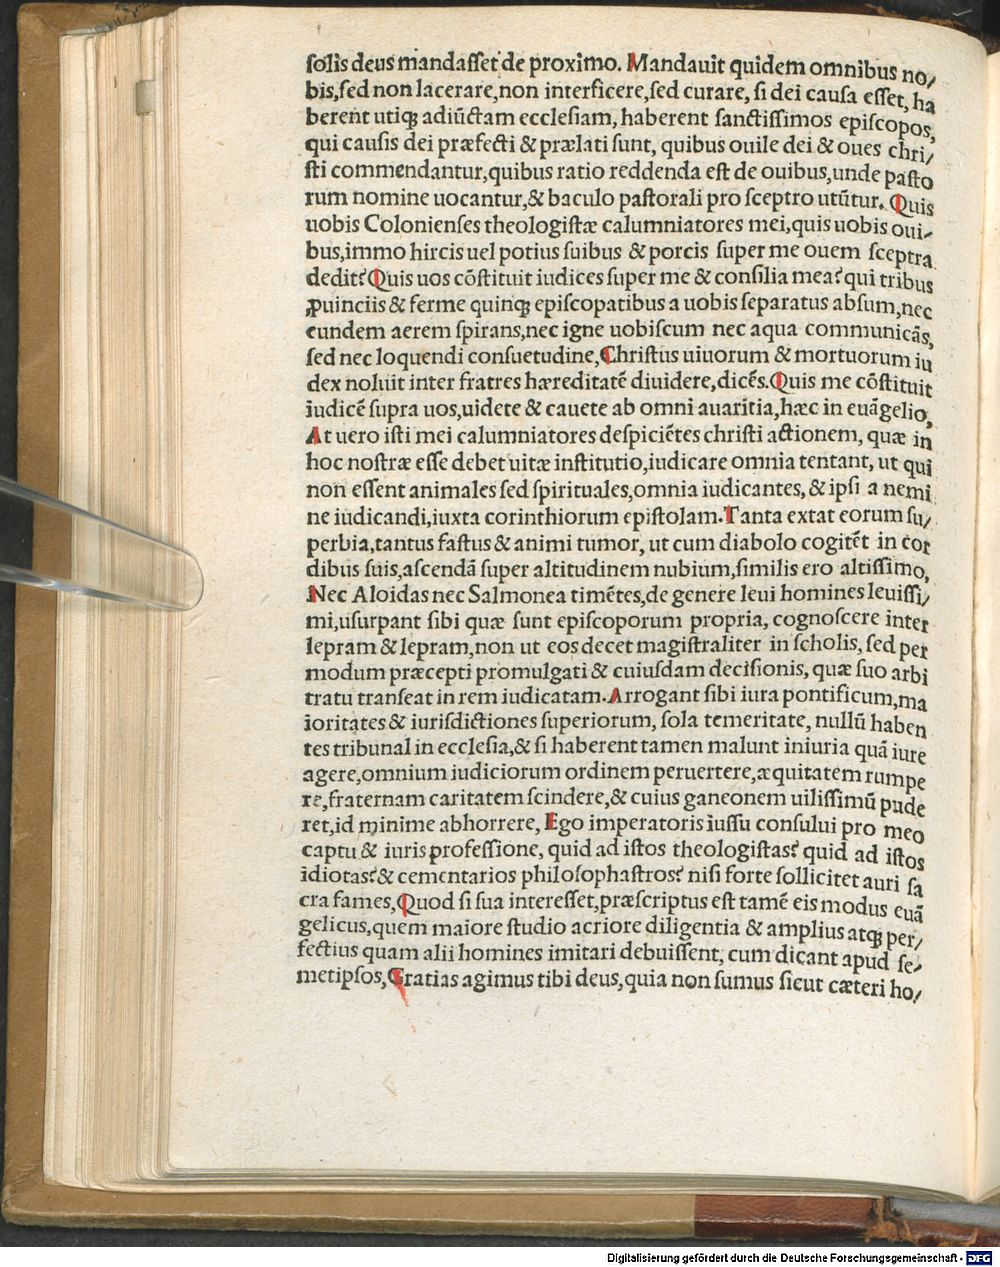 ſolis deus mandaſſet de proximo. Mandauit quidem omnibus no/
bis,ſed non lacerare,non interficere,ſed curare, ſi dei cauſa eſſet, ha
berent utiqꝫ adiūctam eccleſiam, haberent ſanctiſſimos epiſcopos,
qui cauſis dei præfecti & prælati ſunt, quibus ouile dei & oues chri/
ſti commendantur,quibus ratio reddenda eſt de ouibus,unde paſto
rum nomine uocantur,& baculo paſtorali pro ſceptro utūtur. Quis
uobis Colonienſes theologiſtæ calumniatores mei,quis uobis oui/
bus,immo hircis uel potius ſuibus & porcis ſuper me ouem ſceptra
dedit? Quis uos cōſtituit iudices ſuper me & conſilia mea? qui tribus
ꝓuinciis & ferme quinqꝫ epiſcopatibus a uobis ſeparatus abſum,nec
eundem aerem ſpirans,nec igne uobiſcum nec aqua communicās,
ſed nec loquendi conſuetudine,Chriſtus uiuorum & mortuorum iu
dex noluit inter fratres hæreditatē diuidere,dicēs.Quis me cōſtituit
iudicē ſupra uos,uidete & cauete ab omni auaritia,hæc in euāgelio,
At uero iſti mei calumniatores deſpiciētes chriſti actionem, quæ in
hoc noſtræ eſſe debet uitæ inſtitutio,iudicare omnia tentant, ut qui
non eſſent animales ſed ſpirituales,omnia iudicantes, & ipſi a nemi
ne iudicandi,iuxta corinthiorum epiſtolam.Tanta extat eorum ſu/
perbia,tantus faſtus & animi tumor, ut cum diabolo cogitēt in cor
dibus ſuis,aſcendā ſuper altitudinem nubium,ſimilis ero altiſſimo,
Nec Aloidas nec Salmonea timētes,de genere leui homines leuiſſi/
mi,uſurpant ſibi quæ ſunt epiſcoporum propria, cognoſcere inter
lepram & lepram,non ut eos decet magiſtraliter in ſcholis, ſed per
modum præcepti promulgati & cuiuſdam deciſionis, quæ ſuo arbi
tratu tranſeat in rem iudicatam.Arrogant ſibi iura pontificum,ma
ioritates & iuriſdictiones ſuperiorum, ſola temeritate, nullū haben
tes tribunal in eccleſia,& ſi haberent tamen malunt iniuria quā iure
agere,omnium iudiciorum ordinem peruertere,æquitatem rumpe
re,fraternam caritatem ſcindere,& cuius ganeonem uiliſſimū pude
ret,id minime abhorrere, Ego imperatoris iuſſu conſului pro meo
captu & iuris profeſſione, quid ad iſtos theologiſtas? quid ad iſtos
idiotas?& cementarios philoſophaſtros? niſi forte ſollicitet auri ſa
cra fames,Quod ſi ſua intereſſet,præſcriptus eſt tamē eis modus euā
gelicus,quem maiore ſtudio acriore diligentia & amplius atqꝫ per/
fectius quam alii homines imitari debuiſſent, cum dicant apud ſe/
metipſos,Gratias agimus tibi deus,quia non ſumus ſicut cæteri ho/
Digitalisierung gefördert durch die Deutsche Forschungsgemeinschaft - DFG